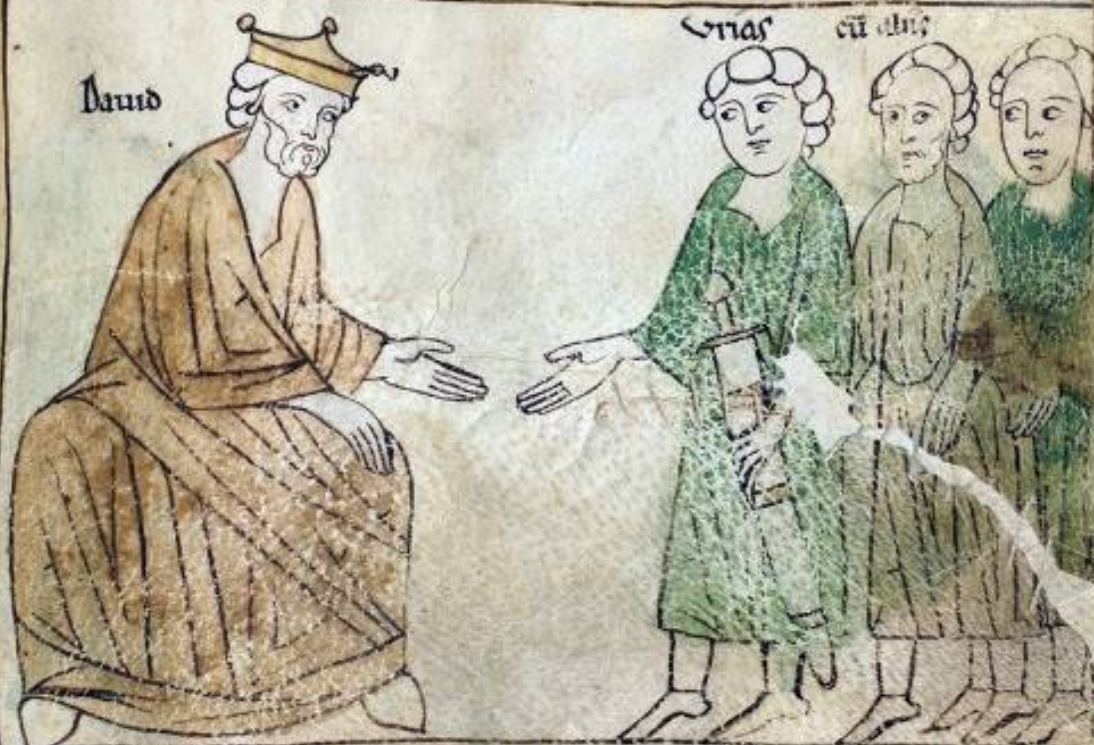 Dauid
Vrias
cū aliis